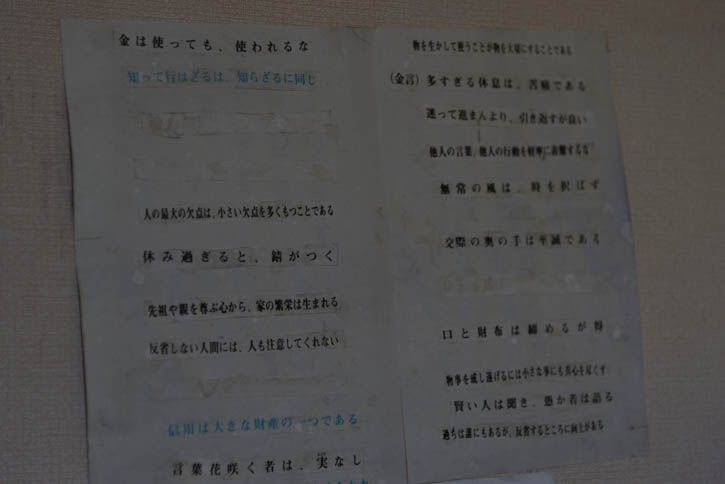 金は使っても、使われるな
知って行はざるは、知らざるに同じ
人の最大の欠点は、小さい欠点を多くもつことである
休み過ぎると、錆がつく
先祖や親を尊ぶ心から、家の繁栄は生まれる
反省しない人間には、人も注意してくれない
信用は大きな財産の一つである
言葉花咲く者は、実なし
物を生かして使うことが物を大切にすることである
(金言) 多すぎる休息は、苦痛である
迷って進まんより、引き返すが良い
他人の言葉、他人の行動を軽率に非難するな
無常の風は、時を択ばず
交際の奥の手は至誠である
口と財布は締めるが得
物事を成し遂げるには小さな事にも真心を尽くす
賢い人は聞き、愚か者は語る
過ちは誰にもあるが、反省するところに向上がある